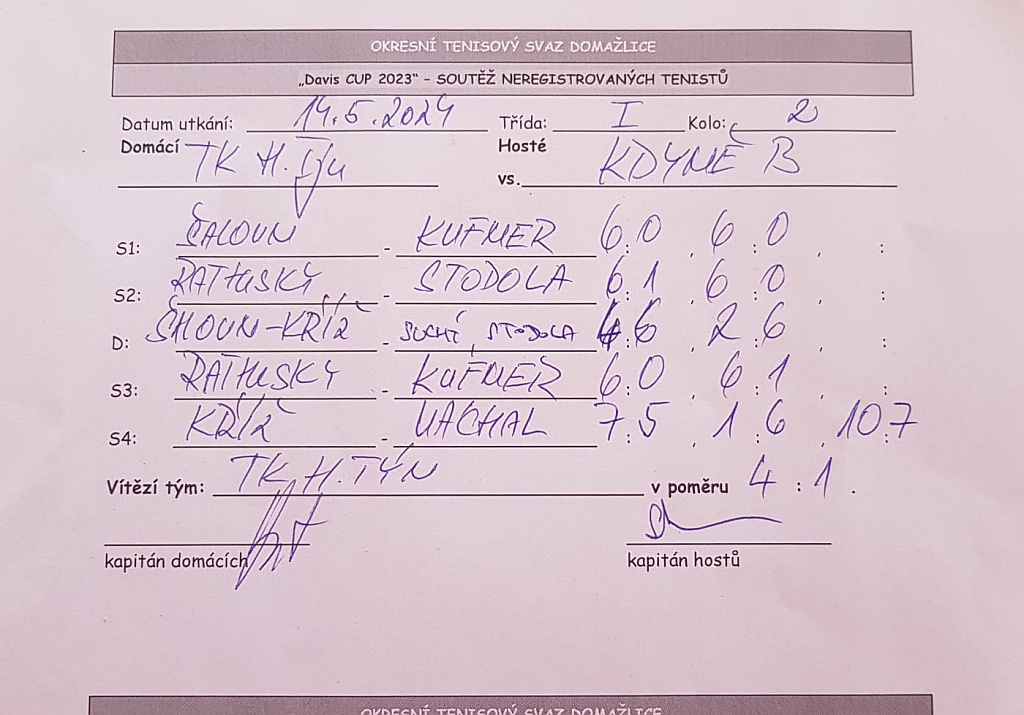 OKRESNÍ TENISOVÝ SVAZ DOMAŽLICE
„Davis CUP 2023“ - SOUTĚŽ NEREGISTROVANÝCH TENISTŮ
Datum utkání: 14.5.2024 Třída: I Kolo: 2
Domácí TK H. Týn Hosté KDYNĚ B
vs.
S1: ŠHOUN - KUFNER 6:0 , 6:0 , :
S2: RATHUSKÝ - STODOLA 6:1 , 6:0 , :
D: ŠHOUN-KŘÍŽ - SUCHÍ, STODOLA 4:6 , 2:6 , :
S3: RATHUSKÝ - KUFNER 6:0 , 6:1 , :
S4: KŘÍŽ - VACHAL 7:5 , 1:6 , 10:7
Vítězí tým: TK H. TÝN v poměru 4 : 1 .
kapitán domácích kapitán hostů
OKRESNÍ TENISOVÝ SVAZ DOMAŽLICE